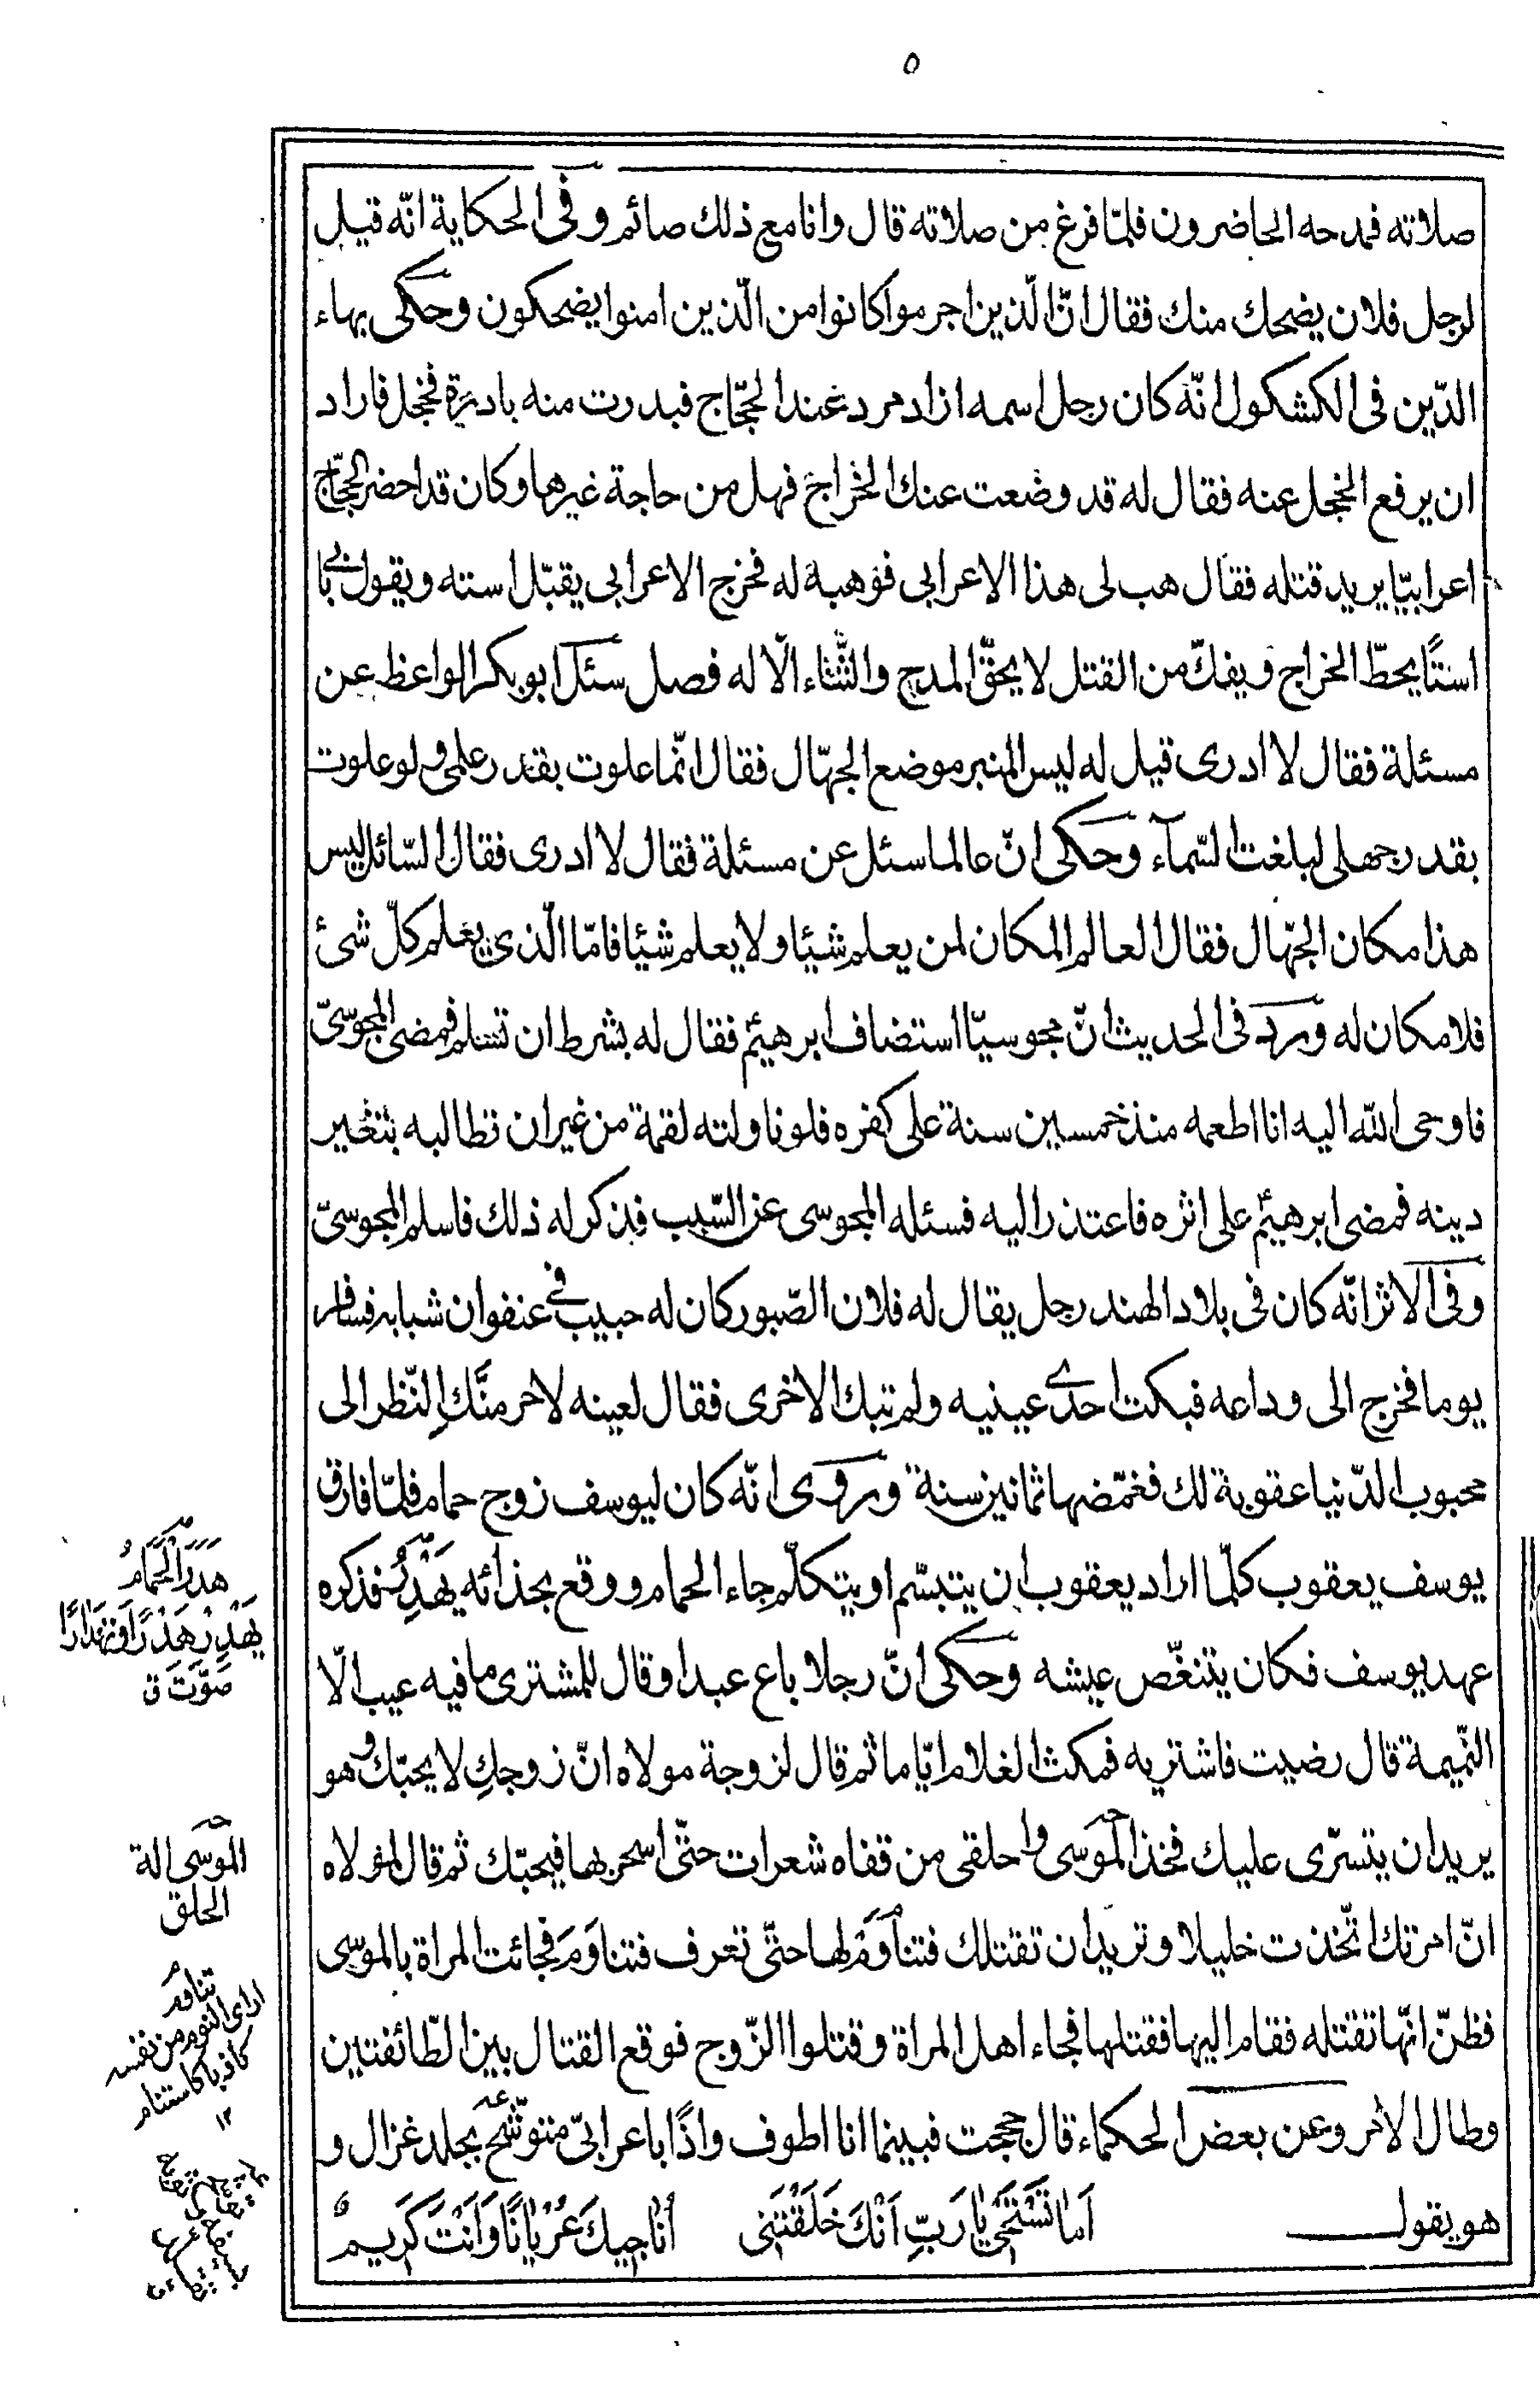 ٥
صلاته فمدحه الحاضرون فلمّا فرغ من صلاته قال وانا مع ذلك صائم وفى الحكاية انّه قيل
لرجل فلان يضحك منك فقال انّ الّذين اجرموا كانوا من الّذين امنوا يضحكون وحكى بهاء
الدّين فى الكشكول انّه كان رجل اسمه ازادمرد عند الحجّاج فبدرت منه بادرة فخجل فاراد
ان يرفع الخجل عنه فقال له قد وضعت عنك الخراج فهل من حاجة غيرها وكان قد احضر الحجّاج
اعرابيّا يريد قتله فقال هب لى هذا الاعرابى فوهبه له فخرج الاعرابى يقبّل استه ويقول بابى
استًا يحطّ الخراج ويفكّ من القتل لا يحقّ المدح والثّناء الّا له فصل سئل ابوبكر الواعظ عن
مسئلة فقال لا ادرى قيل له ليس المنبر موضع الجهّال فقال انّما علوت بقدر علمى ولو علوت
بقدر جهلى لبلغت السّمآء وحكى انّ عالما سئل عن مسئلة فقال لا ادرى فقال السّائل ليس
هذا مكان الجهّال فقال العالم المكان لمن يعلم شيئا ولا يعلم شيئا فامّا الّذى يعلم كلّ شئ
فلا مكان له وورد فى الحديث انّ مجوسيّا استضاف ابرهيم فقال له بشرط ان تسلم فمضى المجوسىّ
فاوحى الله اليه انا اطعمه منذ خمسين سنة على كفره فلو ناولته لقمة من غير ان تطالبه بتغير
دينه فمضى ابرهيم على اثره فاعتذر اليه فسئله المجوسى عن السّبب فذكر له ذلك فاسلم المجوسىّ
وفى الاثر انّه كان فى بلاد الهند رجل يقال له فلان الصّبور كان له حبيب فى عنفوان شبابه فسافر
يوما فخرج الى وداعه فبكت احدى عينيه ولم تبك الاخرى فقال لعينه لاحرمنّكِ النّظر الى
محبوب الدّنيا عقوبة لك فغمّضها ثمانين سنة وروى انّه كان ليوسف زوج حمام فلمّا فارق
يوسف يعقوب كلّما اراد يعقوب ان يتبسّم او يتكلّم جاء الحمام ووقع بحذائه يَهْدِرُ فذكره
عهد يوسف فكان يتنغّص عيشه وحكى انّ رجلا باع عبدا وقال للمشترى ما فيه عيب الّا
النّميمة قال رضيت فاشتريه فمكث الغلام ايّاما ثم قال لزوجة مولاه انّ زوجكِ لا يحبّك وهو
يريد ان يتسرّى عليك فخذ الموسى واحلقى من قفاه شعرات حتّى اسحر بها فيحبّك ثم قال لمولاه
انّ امرتك اتّخذت خليلا وتريد ان تقتلك فتناوَمْ لها حتّى تعرف فتناوَمَ فجائت المراة بالموسى
فظنّ انّها تقتله فقام اليها فقتلها فجاء اهل المراة وقتلوا الزّوج فوقع القتال بين الطّائفتين
وطال الامر وعن بعض الحكماء قال حججت فبينما انا اطوف واذًا باعرابىّ متوشّح بجلد غزال و
هو يقول اَما تَسْتَحِى يَا رَبِّ اَنْكَ خَلَقْتَنِى اُنَاجِيكَ عُرْيَانًا وَاَنْتَ كَرِيمٌ
هَدَرَ الْحَمَامُ
يَهْدِرُ هَدْرًا وَتَهْدَارًا
صَوَّتَ ق
الموسى الة
الحلق
تناوم
ارای النوم من نفسه
كاذبا كاستنام
١٢